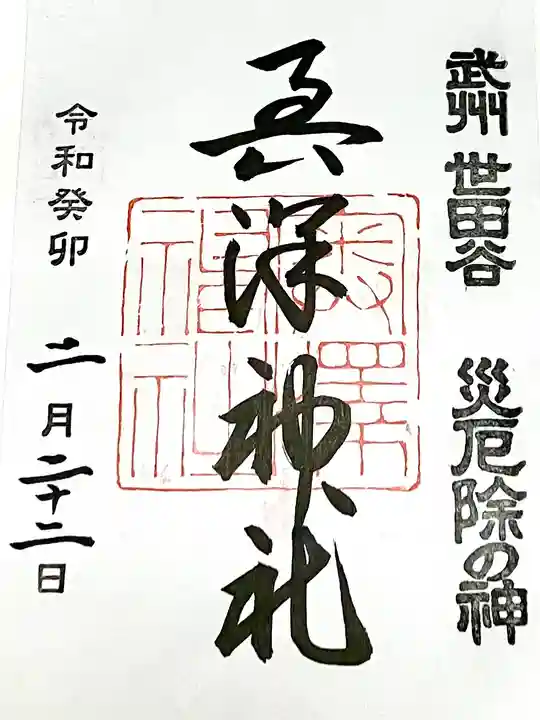 武州 世田谷 災厄除の神
奥澤神社
令和癸卯 二月二十二日